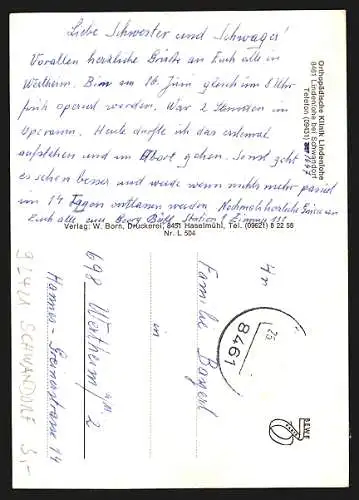 Liebe Schwester und Schwager!
Vorallen herzliche Grüße an Euch alle in
Wertheim. Bin am 16. Juni gleich um 8 Uhr
früh operiert worden. War 2 Stunden im
Operaum. Heute durfte ich das erstemal
aufstehen und im Abort gehen. Sonst geht
es schon besser und werde wenn nichts mehr passiert
im 14 Tagen entlassen werden Nochmals herzliche Grüße an
Euch alle von Georg Station Zimmer
Orthopädische Klinik Lindenlohe
8461 Lindenlohe bei Schwandorf
Telefon (09431)
Verlag: W. Born, Druckerei, 8451 Haselmühl, Tel. (09621) 8 22 58
Nr. L 504
An
Familie Bayerl
in
698 Wertheim/M. 2
Hannes-Greinerstrasse 14
8461
92421 SCHWANDORF 3,-